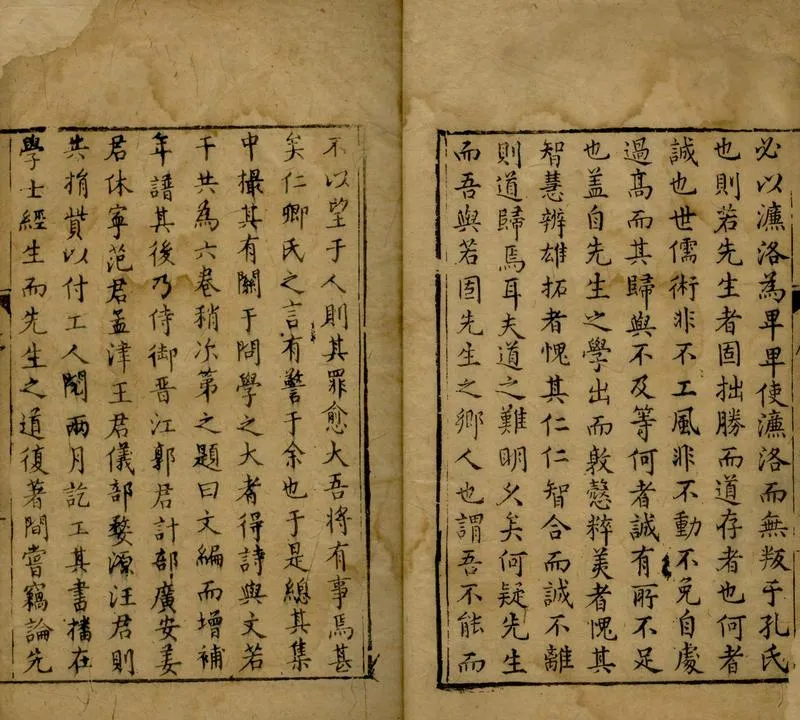 必以濂洛為畢畢使濂洛而無叛于孔氏
也則若先生者固拙勝而道存者也何者
誠也世儒術非不工風非不動不免自處
過高而其歸與不及等何者誠有所不足
也盖自先生之學出而敦慤粹美者愧其
智慧辨雄拓者愧其仁仁智合而誠不離
則道歸焉耳夫道之難明久矣何疑先生
而吾與若固先生之鄉人也謂吾不能而
不以望于人則其罪愈大吾將有事焉甚
矣仁卿氏之言有警于余也于是總其集
中撮其有關于問學之大者得詩與文若
干共為六卷稍次第之題曰文編而增補
年譜其後乃侍御晋江郭君計部廣安姜
君休寧范君孟津王君儀部婺源汪君則
共捐貲以付工人閱兩月訖工其書播在
學士經生而先生之道復著間嘗竊論先